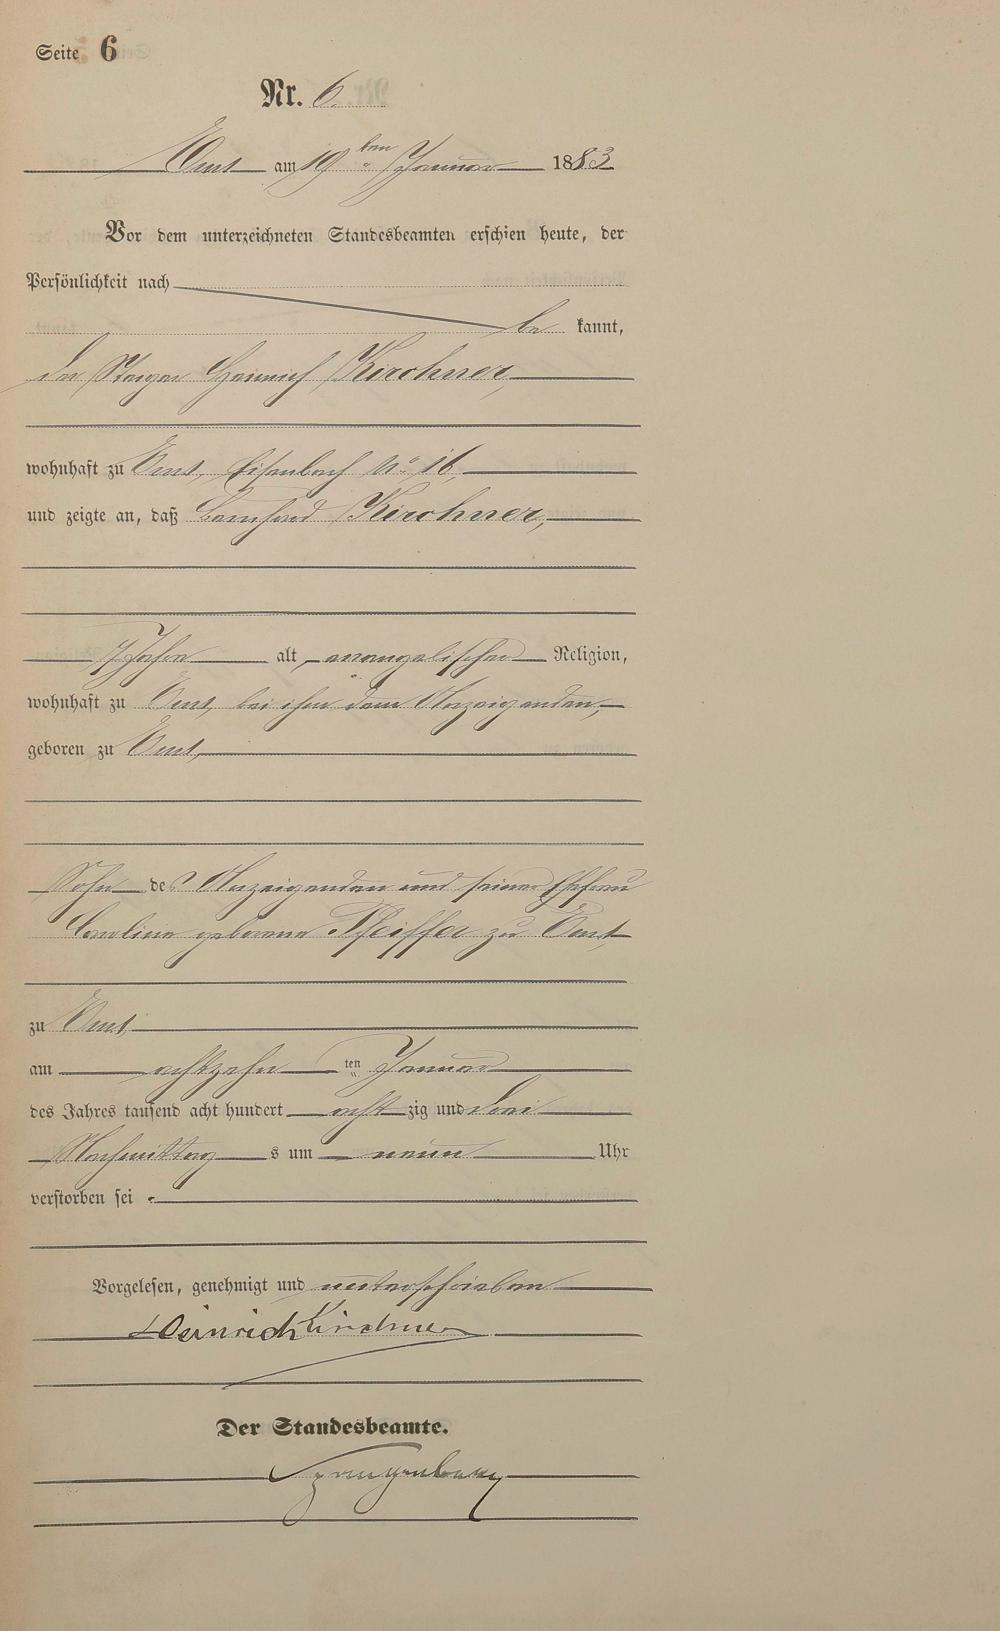 Seite 6
Nr. 6.
Ems am 19ten Januar 1883
Vor dem unterzeichneten Standesbeamten erschien heute, der
Persönlichkeit nach
be kannt,
der Steiger Heinrich Kirchner,
wohnhaft zu Ems, Eisenbach No 16,
und zeigte an, daß Bernhard Kirchner,
Jahre alt, evangelischer Religion,
wohnhaft zu Ems, bei ihm dem Anzeigenden,
geboren zu Ems,
Sohn des Anzeigenden und seiner Ehefrau
Caroline geborene Pfeiffer zu Ems
zu Ems
am achtzehn ten Januar
des Jahres tausend acht hundert acht zig und drei
Nachmittag s um neun Uhr
verstorben sei .
Vorgelesen, genehmigt und unterschrieben
Heinrich Kirchner
Der Standesbeamte.